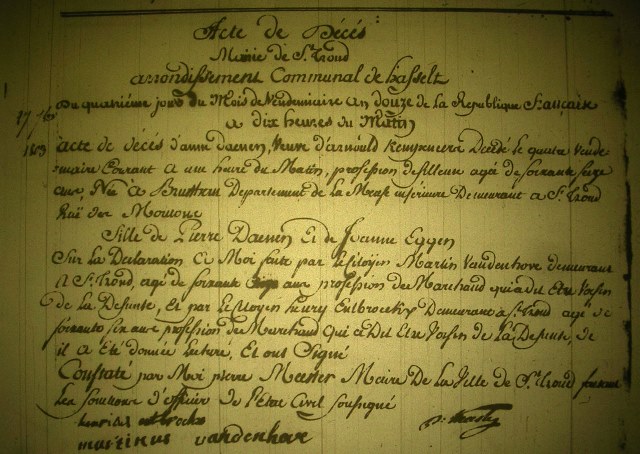 Acte de Décés
Mairie de St. Trond
arrondissement Communal de hasselt
Du quatriéme jour du Mois de Vendemiaire an douze de la Republique Française
a dix heures du Matin
acte de décés d'anne daenen, Veuve d'arnould Decedé le quatre Vende
maire Courant a une heure du Matin, profession de fileuse agée de soixante
ans Née a Departement de la Meuse inférieure Demeurant a St. Trond
Ruë des Moutons
fille de Pierre Daenen Et de Jeanne Eggen
Sur la Declaration a Moi faite par le Citoyen Martin Vandenhove demeurant
a St. Trond, agé de soixante ans profession de Marchand qui a dit etre Voisin
de la Defunte, et par le Citoyen henry Demeurant a St. Trond agé de
soixante six ans profession de Marchand qui a Dit Etre Voisin de la Defunte, de
il a été donnée lecture, Et ont Signé
Constaté par Moi pierre Maire De la Ville de St. Trond faisant
les fonctions d'officier de l'Etat Civil soussigné
henricus
martinus vandenhove